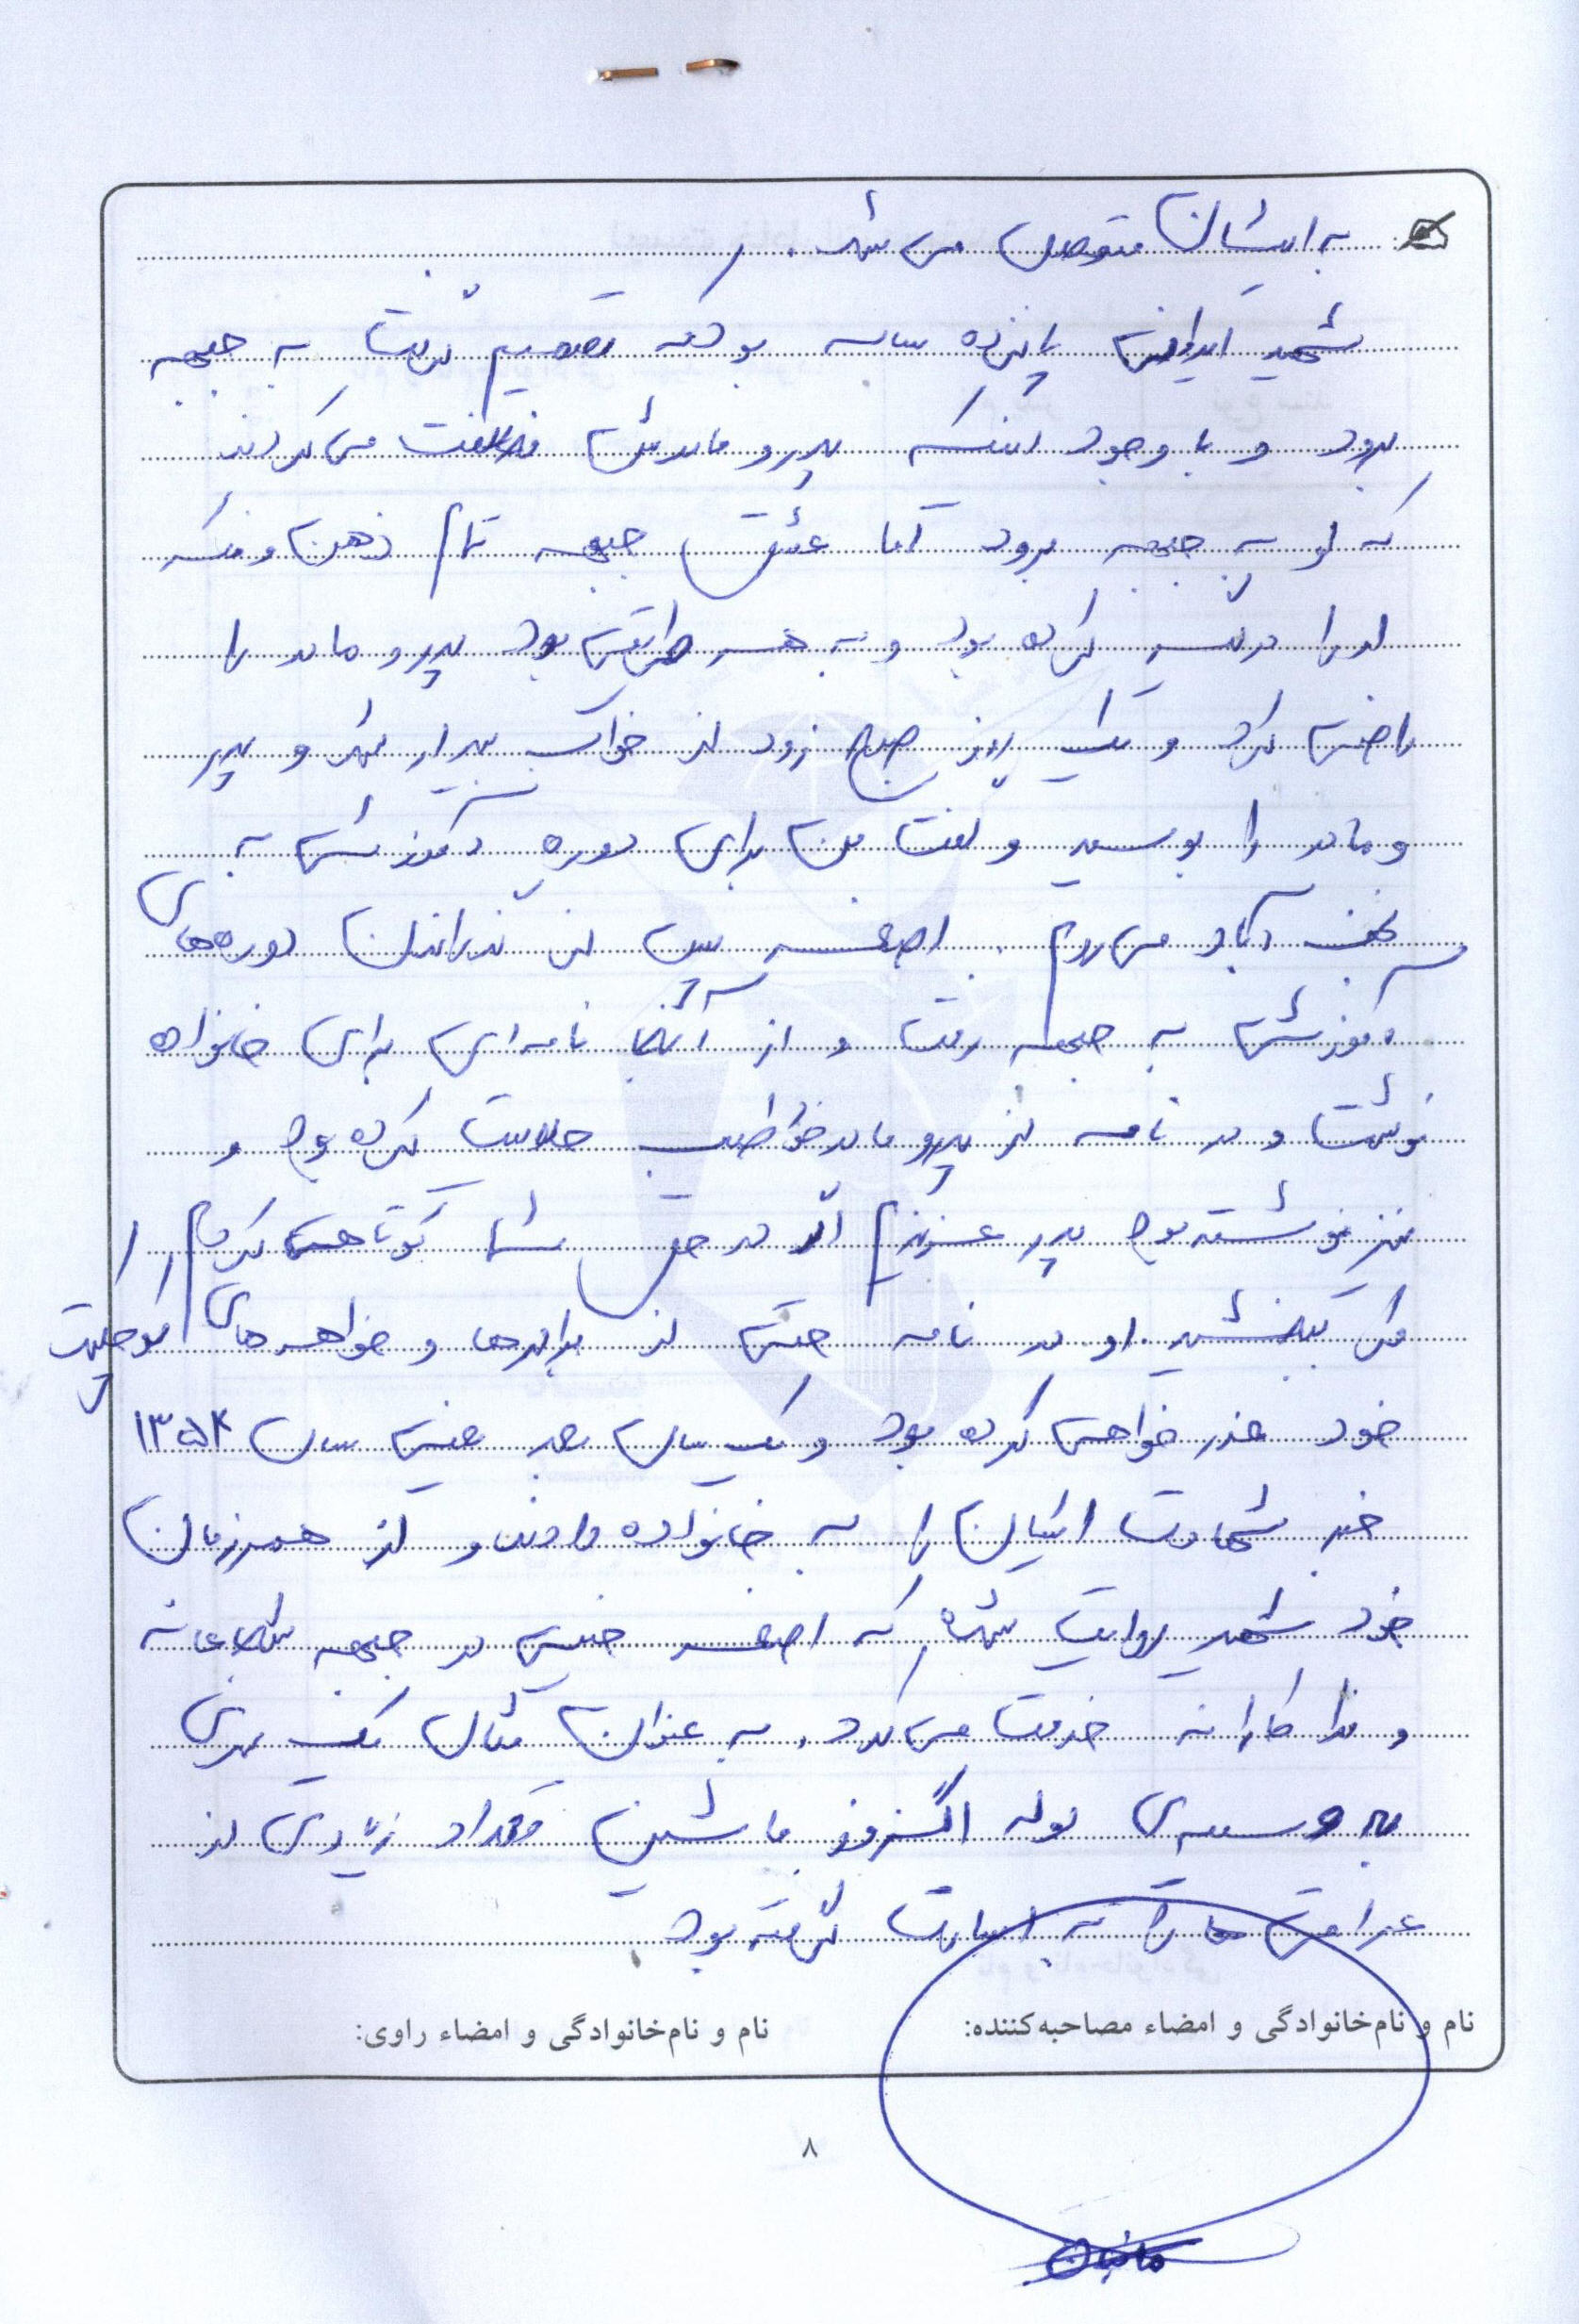 به ایشان متوصل می شد.
شهید ایرانی پانزده ساله بود که تصمیم گرفت به جبهه
برود و با وجود اینکه پدر و مادرش مخالفت می کردند
که او به جبهه برود اما عشق جبهه تمام ذهن و فکر
او را درگیر کرده بود و به هر طریقی بود پدر و مادر را
راضی کرد و یک روز صبح زود از خواب بیدار شد و پدر
و مادر را بوسید و گفت من برای دوره آموزشی به
نجف آباد می روم. اصغر پس از گذراندن دوره های
آموزشی به جبهه رفت و از آنجا نامه ای برای خانواده
نوشت و در نامه از پدر و مادر طلب حلالیت کرده بود و
نیز نوشته بود پدر عزیزم اگر در حق شما کوتاهی کردم
مرا ببخشید. او در نامه حتی از برادرها و خواهرهای کوچکتر
خود عذر خواهی کرده بود و یک سال بعد یعنی سال ۱۳۵۴
خبر شهادت ایشان را به خانواده دادند و از همرزمان
خود شهید روایت شده که اصغر خیلی در جبهه شجاعانه
و فدا کارانه خدمت می کرد. به عنوان مثال یک سری
به وسیله ی لوله اگزوز ماشین تعداد زیادی از
عراقی ها را به اسارت گرفته بود
نام و نام‌خانوادگی و امضاء مصاحبه‌کننده: نام و نام‌خانوادگی و امضاء راوی:
۸